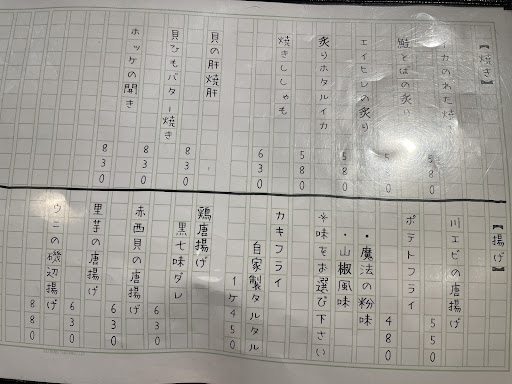 【焼き】
イカのわた焼
580
鮭とばの炙り
580
エイヒレの炙り
580
炙りホタルイカ
580
焼きししゃも
630
貝の肝焼肝
830
貝ひもバター焼き
830
ホッケの開き
830
【揚げ】
川エビの唐揚げ
550
ポテトフライ
480
・魔法の粉味
・山椒風味
※味をお選び下さい
カキフライ
自家製タルタル
1ケ450
鶏唐揚げ
黒七味ダレ
630
赤西貝の唐揚げ
630
里芋の唐揚げ
630
ウニの磯辺揚げ
880